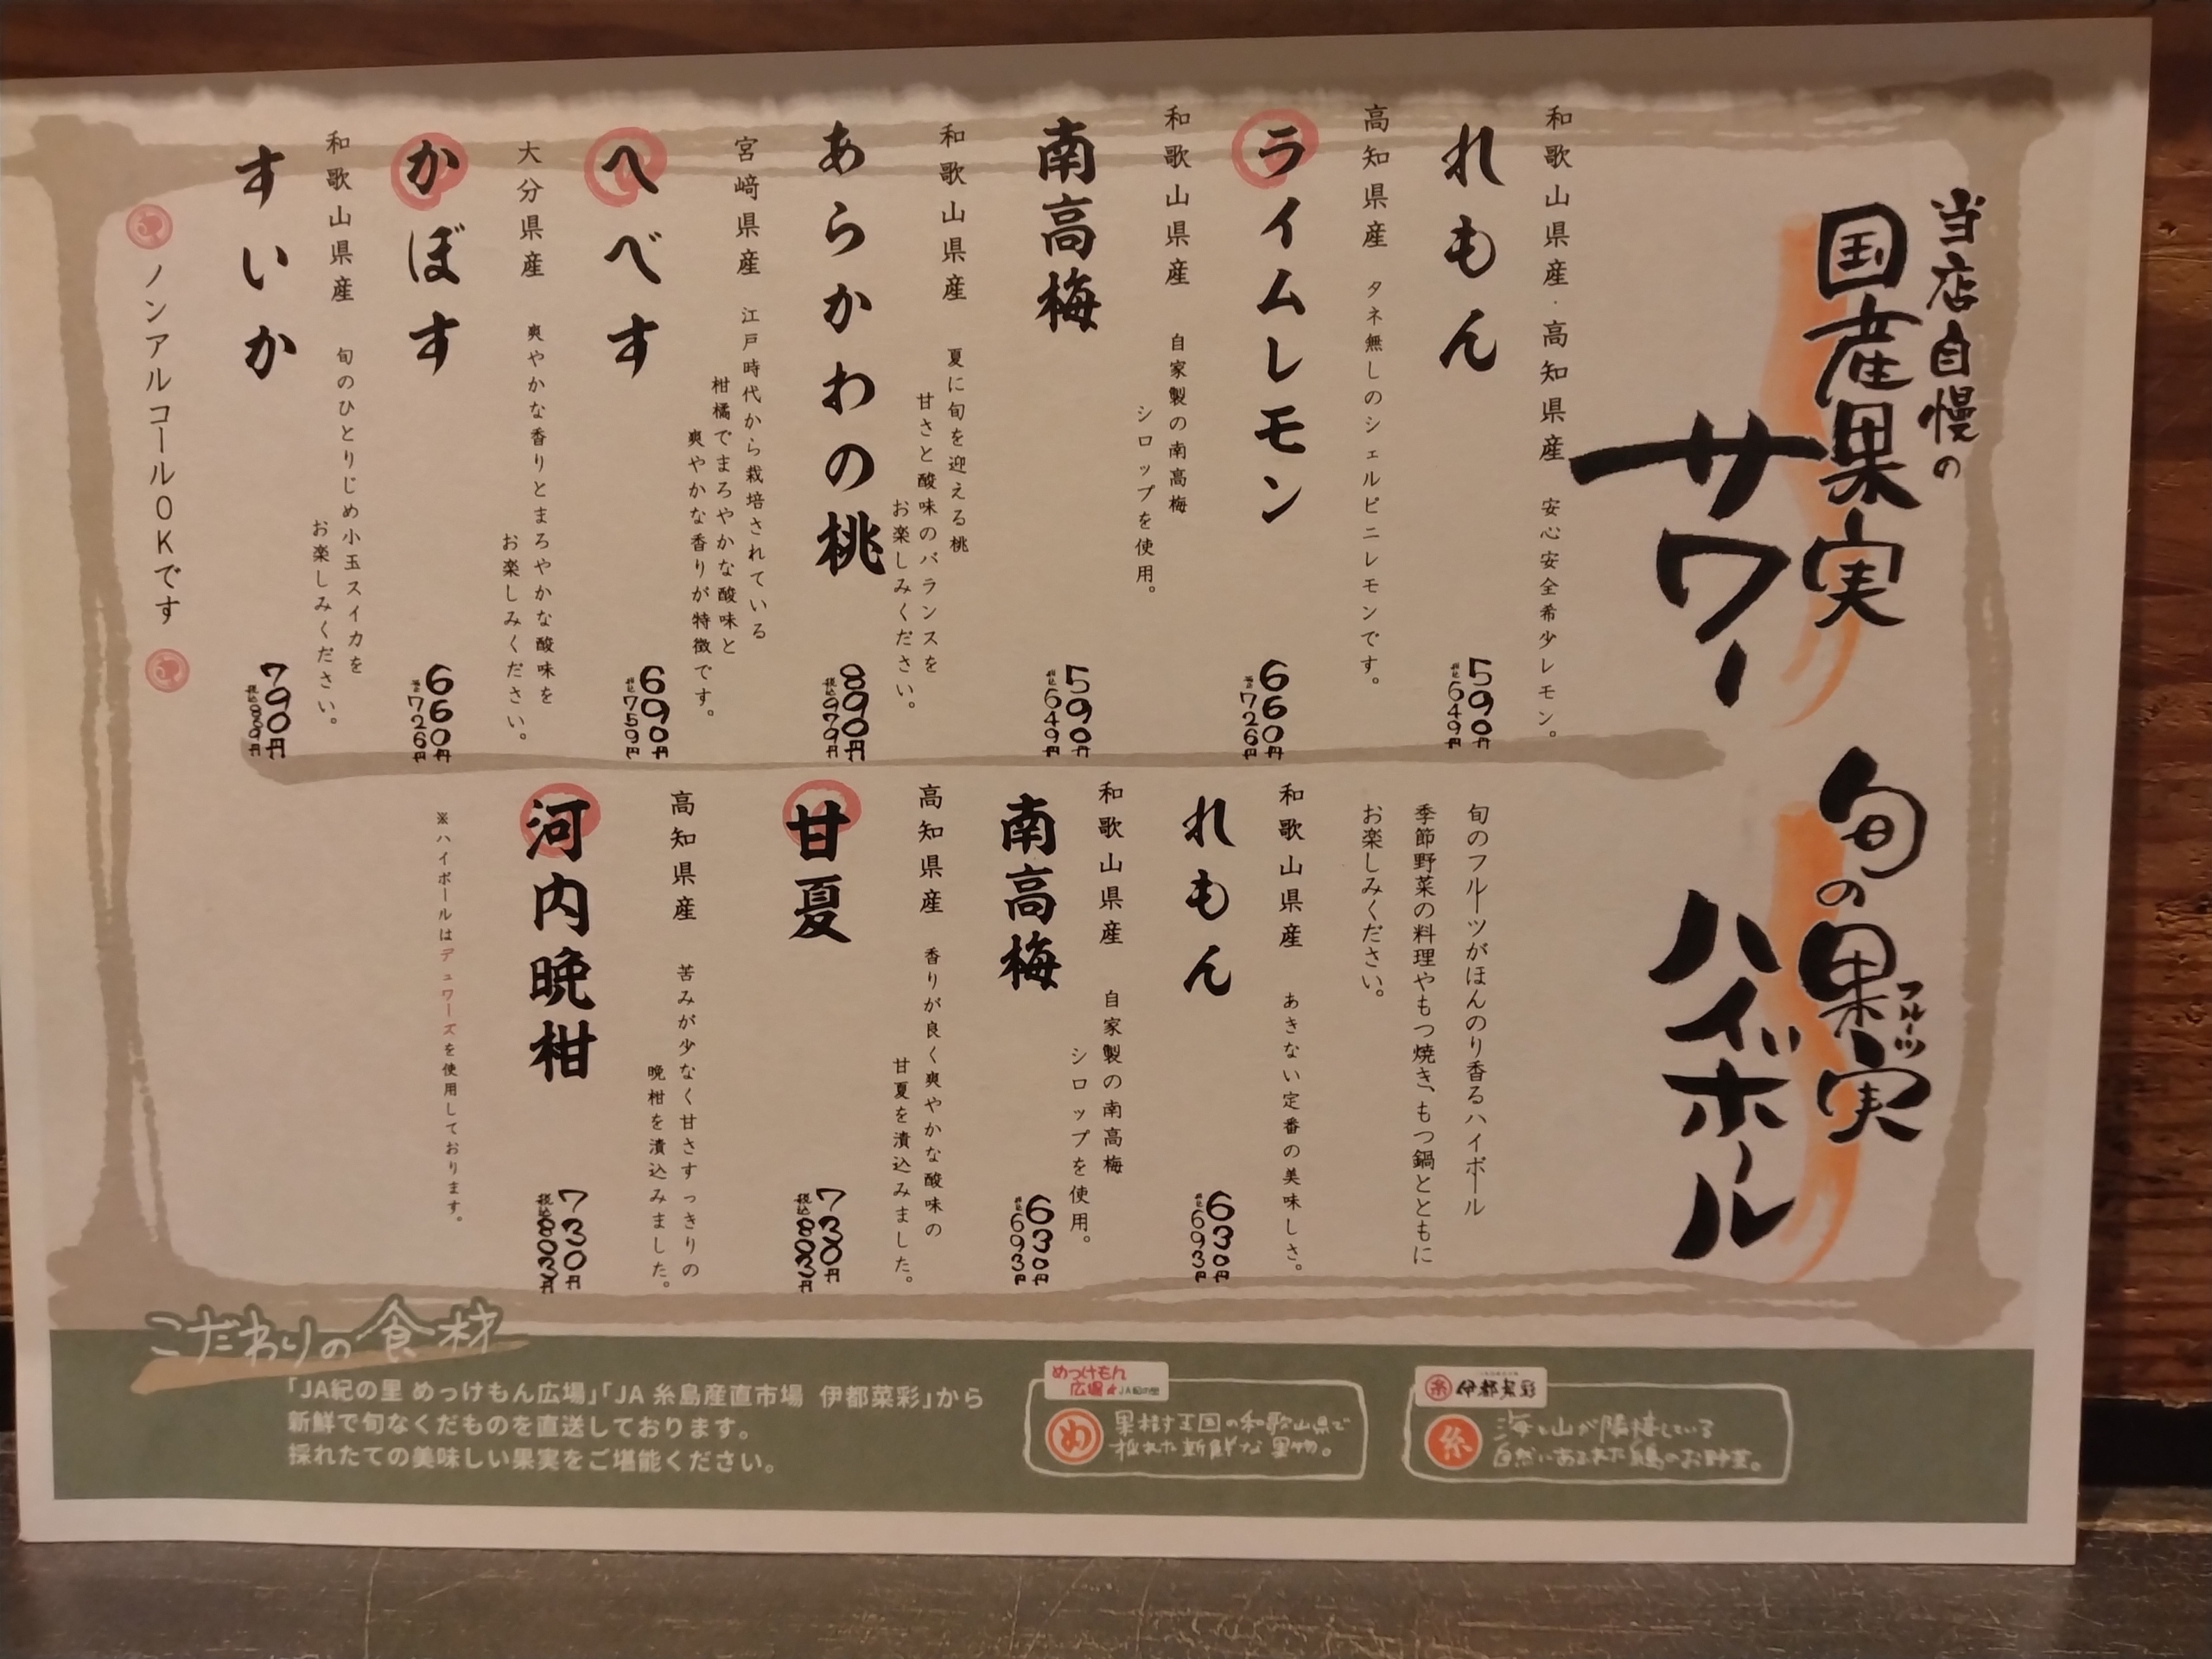 当店自慢の
国産果実
サワー
和歌山県産・高知県産 安心安全希少レモン。
れもん
590円
税込649円
高知県産 タネ無しのシェルピニレモンです。
ライムレモン
660円
税込726円
和歌山県産 自家製の南高梅
シロップを使用。
南高梅
590円
税込649円
和歌山県産 夏に旬を迎える桃
甘さと酸味のバランスを
お楽しみください。
あらかわの桃
890円
税込979円
宮﨑県産 江戸時代から栽培されている
柑橘でまろやかな酸味と
爽やかな香りが特徴です。
へべす
690円
税込759円
大分県産 爽やかな香りとまろやかな酸味を
お楽しみください。
かぼす
660円
税込726円
和歌山県産 旬のひとりじめ小玉スイカを
お楽しみください。
すいか
790円
税込869円
ノンアルコールOKです
旬の果実
フルーツ
ハイボール
旬のフルーツがほんのり香るハイボール
季節野菜の料理やもつ焼き、もつ鍋とともに
お楽しみください。
和歌山県産 あきない定番の美味しさ。
れもん
630円
税込693円
和歌山県産 自家製の南高梅
シロップを使用。
南高梅
630円
税込693円
高知県産 香りが良く爽やかな酸味の
甘夏を漬込みました。
甘夏
730円
税込803円
高知県産 苦みが少なく甘さすっきりの
晩柑を漬込みました。
河内晩柑
730円
税込803円
※ハイボールはデュワーズを使用しております。
こだわりの食材
「JA紀の里 めっけもん広場」「JA 糸島産直市場 伊都菜彩」から
新鮮で旬なくだものを直送しております。
採れたての美味しい果実をご堪能ください。
めっけもん
広場 JA紀の里
め
果樹王国の和歌山県で
採れた新鮮な果物。
糸 伊都菜彩
糸
海と山が隣接している
自然にあふれた糸島のお野菜。